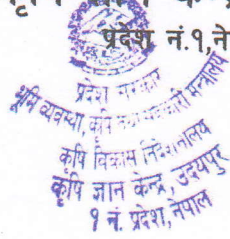 प्रदेश नं.१,ने
प्रदेश सरकार
भूमि व्यवस्था, कृषि तथा सहकारी मन्त्रालय
कृषि विकास निर्देशनालय
कृषि ज्ञान केन्द्र, उदयपुर
१ नं. प्रदेश, नेपाल